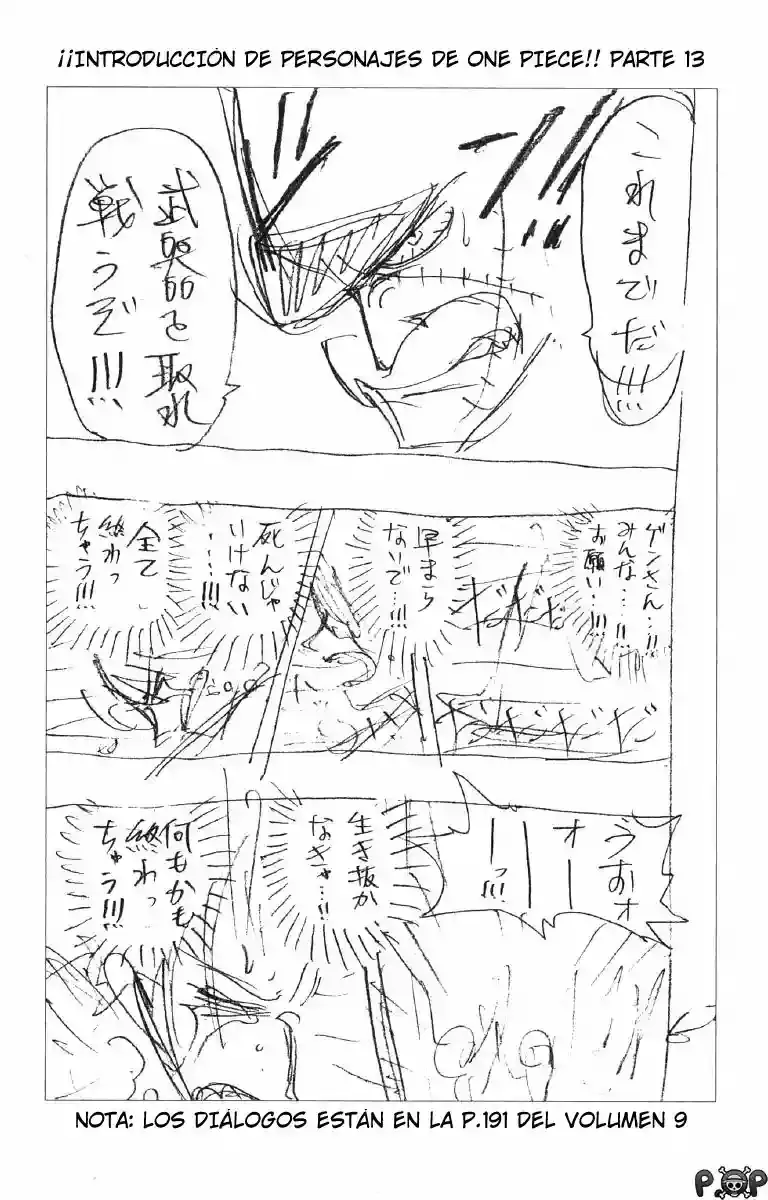 ¡¡INTRODUCCIÓN DE PERSONAJES DE ONE PIECE!! PARTE 13
これまでだ!!!
武器を取れ
戦うぞ!!!
ゲンさん…!!
みんな…!!
お願い…!!!
早まら
ないで…!!!
死んじゃ
いけない
…!!!
全て
終わっ
ちゃう!!!
うおォ
オーー
ーーッ!!!
生き抜か
なきゃ…!!
何もかも
終わっ
ちゃう!!!
NOTA: LOS DIÁLOGOS ESTÁN EN LA P.191 DEL VOLUMEN 9
P.OP